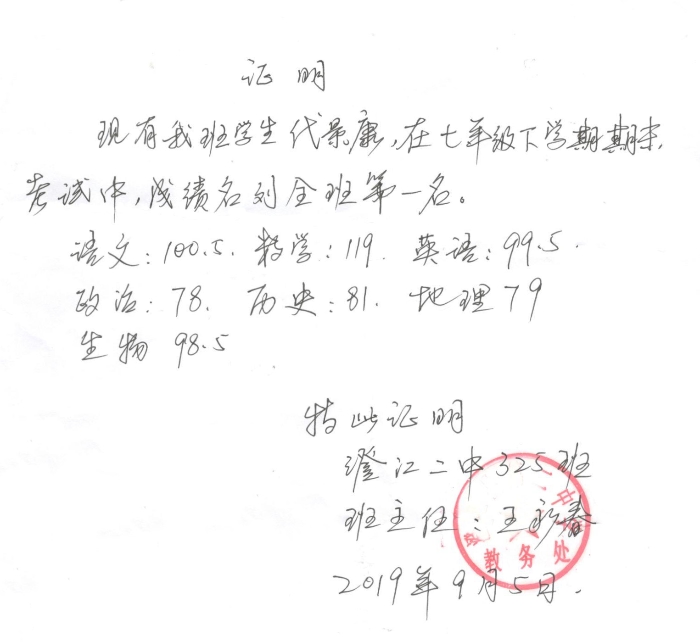 证明
现有我班学生代景康,在七年级下学期期末
考试中,成绩名列全班第一名。
语文:100.5. 数学:119. 英语:99.5.
政治:78. 历史:81. 地理79
生物 98.5
特此证明
澄江二中325班
班主任:王永春
2019年9月5日.
二中
教务处